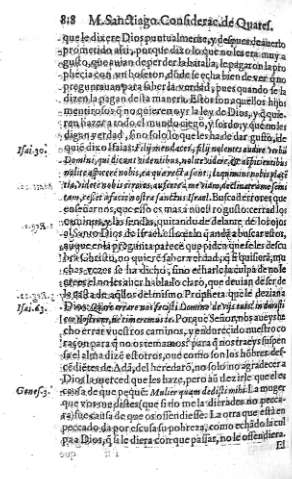 818 M. Sanctiago. Considerac. de Quares.
que le dixere Dios puntualmente, y despues de auerlo
prometido assi, porque dixo lo que no les era muy a
gusto, que auian de perder la batalla, le pagaron la pro
phecia con vn bofeton, dõde se echa bien de ver q̃ no
preguntauan para saber la verdad, pues quando se la
dizen la pagan desta manera. Estos son aquellos hijos
mentirosos q̃ no quieren oyr la ley de Dios, y q̃ quie-
ren hazer a todo el mundo ciego, y sordo, y que no les
digan verdad, sino solo lo que les ha de dar gusto, de
Isai. 30. quiẽ dixo Isaias: Filij mendaces, filij nolentes audire legem
Domini, qui dicunt videntibus, nolite videre, & aspicientibus
nolite aspicere nobis, ea quæ recta sunt, loquimini nobis
videte nobis errores, auferte a me viam, declinate a me semi
tam, cesset a facie nostra sanctus Israel. Buscad errores que
enseñarnos, que esso es mas a nuestro gusto: cerrad los
caminos, y las sendas, quitando de delante de los ojos
al Sancto Dios de Israel,
aunque en la pregunta parece que piden que les des cu
bra a Christo, no quierẽ saber verdad, q̃ si quisierã, mu
chas vezes se ha dicho, sino echarle la culpa de no le
creer, el no les auer hablado claro, que deuian de ser de
la casta de aq̃llos del mismo Propheta que le dezian a
Isai. 63. Dios: Quare errare nos fecisti Domine de vijs tuis, indurasti
cor nostrum, ne timeremus te. Porque Señor nos aueys he
cho errar vuestros caminos, y endurecido nuestro co
raçon para q̃ no os temamos?
sa el alma dize estotros, que como son los hõbres des-
cẽdiẽtes de Adã, del heredarõ, no solo no agradecer a
Dios la merced que les haze, pero aũ dezirle que el es
Genes. 3. causa de que pequẽ: Mulier quam dedisti mihi. La muger
que vos me distes (que si no me la dierades no pecca-
ra) fue causa de que os offendiesse. La otra que está en
peccado, da por escusa su pobreza, como echãdo la cul
pa a Dios, q̃ si le diera con que passar, no le offendiera.
El